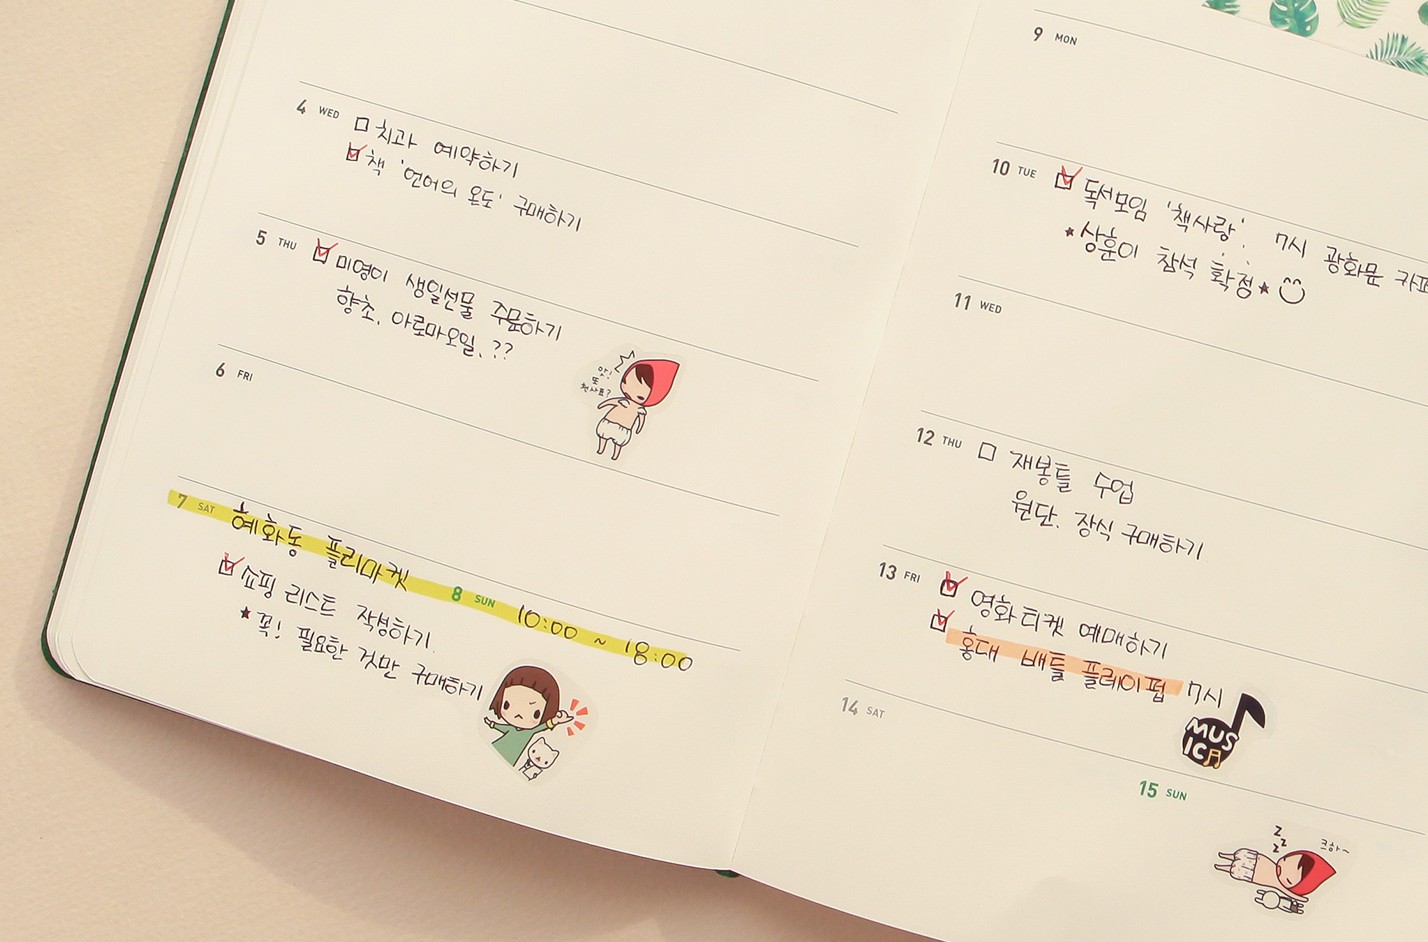 4 WED
□ 치과 예약하기
☑ 책 '언어의 온도' 구매하기
5 THU
☑ 미영이 생일선물 주문하기
향초, 아로마오일, ??
앗!
또
천사표?
6 FRI
7 SAT
혜화동 플리마켓
8 SUN
10:00 ~ 18:00
☑ 쇼핑 리스트 작성하기.
★ 꼭! 필요한 것만 구매하기
9 MON
10 TUE
☑ 독서모임 '책사랑'. 7시 광화문 카페
★상훈이 참석 확정★
11 WED
12 THU
□ 재봉틀 수업
원단. 장식 구매하기
13 FRI
☑ 영화티켓 예매하기
☑ 홍대 배틀 플레이펍 7시
MUS
IC
14 SAT
15 SUN
z
zz
크하~